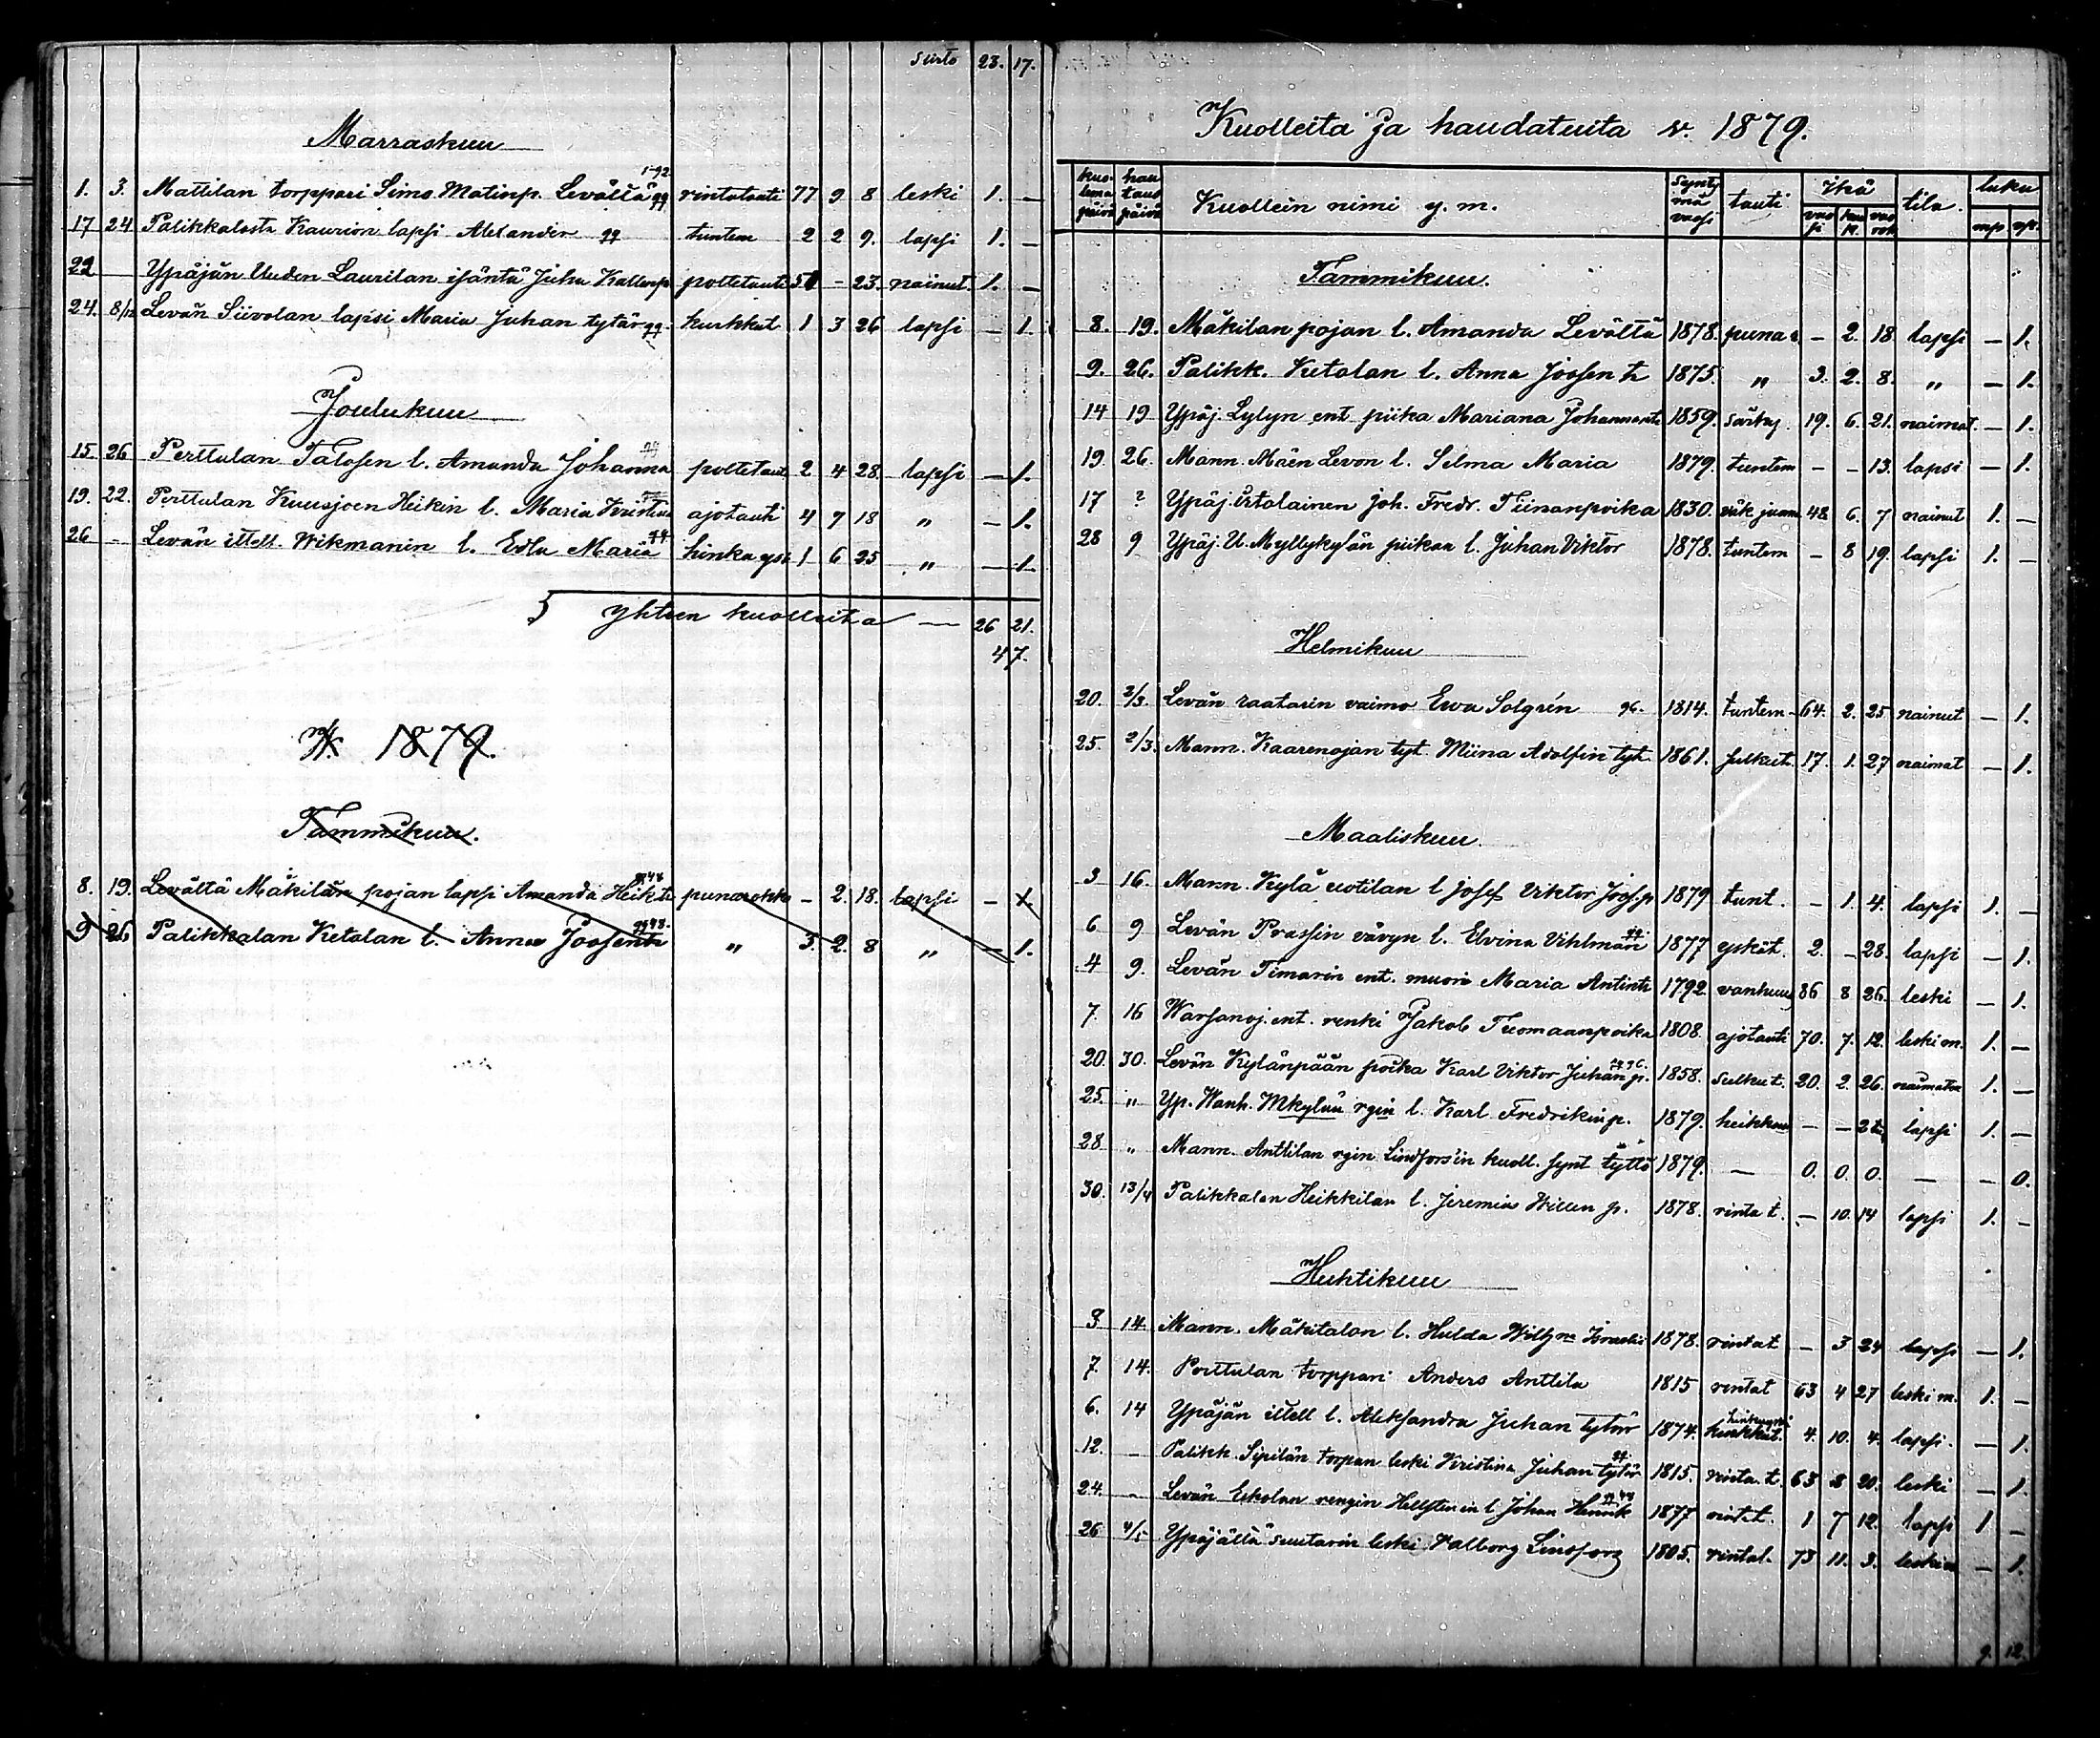 Siirto 23. 17.
Marraskuu
1. 3. Mattilan torppari Simo Matinp. Levältä rintatauti 77 9 8 leski 1. —
17 24 Palikkalasta Kaurion lapsi Alexander tuntem 2 2 9. lapsi 1. —
22 Ypäjän Uuden Laurilan isäntä Juha Kallenp poltetauti - 23. nainut. 1. —
24. 8/12 Levän Siivolan lapsi Maria Juhan tytär kurkkut 1 3 26 lapsi — 1.
Joulukuu
15 26 Perttulan Talosen l. Amanda Johanna poltetaut 2 4 28. lapsi — 1.
19. 22. Perttulan Kuusjoen Heikin l. Maria Kristina ajotauti 4 7 18 „ — 1.
26 - Levän ittell. Wikmanin l. Edla Maria hinka ysk 1 6 25 „ — 1
yhteen kuolleita — 26 21.
47.
W. 1879.
Tammikuu.
8. 19. Levältä Mäkilän pojan lapsi Amanda Heik.t. punarokko - 2. 18. lapsi - 1.
9 26 Palikkalan Ketolan l. Anna Joosent. „ 3. 2. 8 „ 1.
Kuolleita ja haudatuita v. 1879.
kuolema päivä hautaus päivä Kuollein nimi y. m. Synty mä vuosi tauti ikä tila. luku
vuosi kuuk. vuorok mp vp.
Tammikuu.
8. 19. Mäkilan pojan l. Amanda Levältä 1878. puna r. - 2. 18 lapsi — 1.
9. 26. Palikk. Ketolan l. Anna Joosen t. 1875. „ 3. 2. 8. „ — 1.
14 19 Ypäj. Lylyn ent piika Mariana Johannant. 1859. särky 19. 6. 21. naimat. — 1.
19. 26. Mann. Mäen Levon l. Selma Maria 1879. tuntem - - 13. lapsi — 1.
17 ? Ypäj. irtolainen Joh. Fredr. Tiinanpoika 1830. 48. 6. 7 nainut 1. —
28 9 Ypäj. U. Myllykylän piikan l. Juhan Viktor 1878. tuntem - 8 19. lapsi 1. —
Helmikuu
20. 2/3. Levän raatarin vaimo Ewa Solgrén 96. 1814. tuntem 64. 2. 25 nainut — 1.
25. 2/3. Mann. Kaarenojan tyt. Miina Adolfin tyt. 1861. Julkut. 17. 1. 27 naimat — 1.
Maaliskuu.
3 16. Mann. Kylä uotilan l Josef Viktor Joos.p 1879 tunt. - 1. 4. lapsi 1. —
6 9 Levän Prassin vävyn l. Elvina Vihlman 1877 ysköt. 2. - 28. lapsi — 1.
4 9. Levän Timarin ent. muori Maria Antint. 1792 vanhuus 86 8 26. leski — 1.
7. 16 Warsanoj. ent. renki Jakob Tuomaanpoika 1808. ajotauti 70. 7. 12. leski m. 1. —
20. 30. Levän Kylänpään poika Karl Viktor Juhan p. 1858. Sulkut. 20. 2. 26. naimaton 1. —
25. „ Yp. Wanh. Mkylän rgin l. Karl Fredrikin p. 1879. heikkous - - lapsi 1. —
28 „ Mann. Anttilan rgin Lindforsin kuoll. synt tyttö 1879. — 0. 0. 0. — - 0.
30. 13/4 Palikkalan Heikkilan l. Jeremias Willen p. 1878. rinta t. — 10. 14 lapsi 1. -
Huhtikuu
3 14. Mann. Mäkitalon l. Hulda 1878. rintat — 3 24 lapsi — 1.
7. 14. Perttulan torppari Anders Anttila 1815 rintat 63 4 27 leski m. 1. —
6. 14 Ypäjän ittell l. Aleksandra Juhan tytär 1874. kurkkut. 4. 10. 4. lapsi. — 1.
12. — Palikk. Sipilän torpan leski Kristina Juhan tytär 1815. rinta t. 63 8 20. leski — 1.
24. - Levän Eskolan rengin Hellstenin l Johan Henrik 1877 rintat. 1 7 12. lapsi 1 —
26 4/5 Ypäjältä suutarin leski Walborg Lindfors 1805. rintat. 73 11. 3. leski — 1.
9. 12.